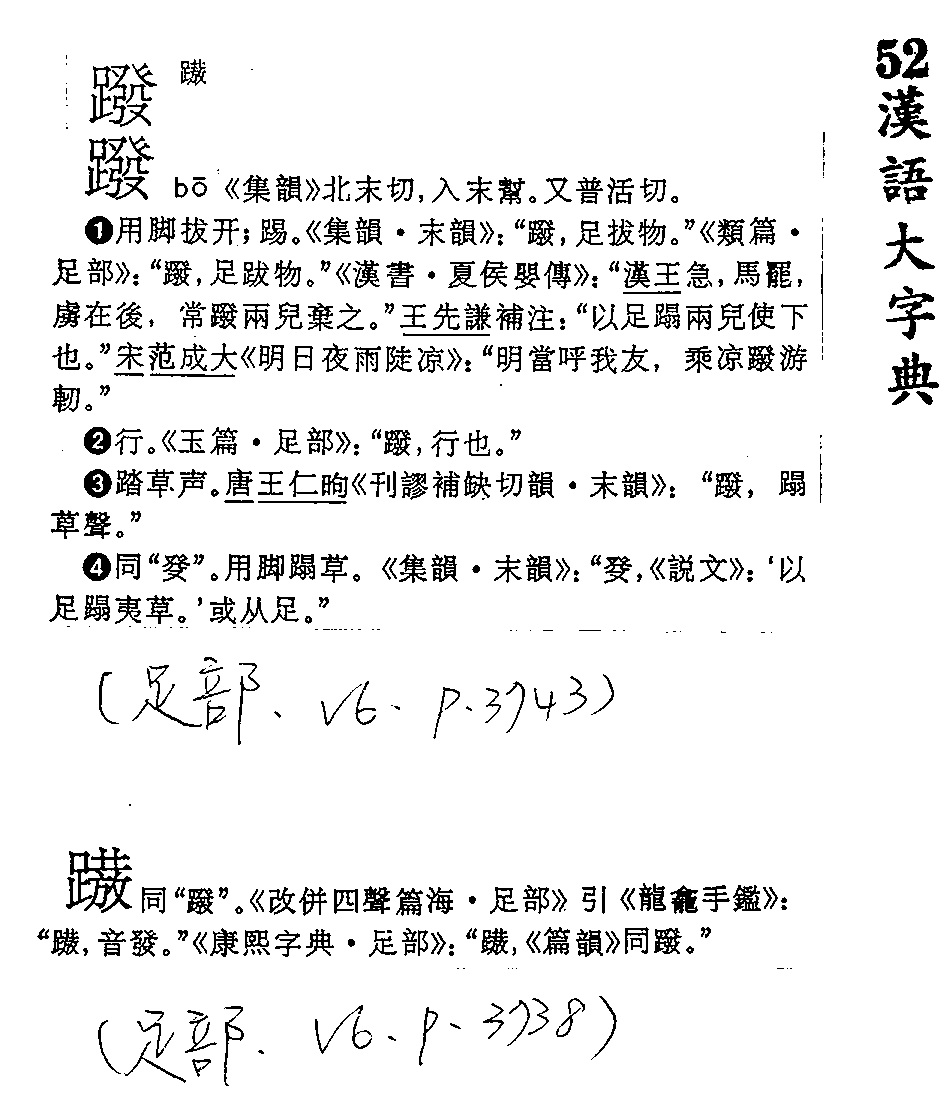 52漢語大字典
蹳
蹳 bō《集韻》北末切,入末幫。又普活切。
❶用脚拔开；踢。《集韻·末韻》：“蹳,足拔物。”《類篇·
足部》：“蹳,足跋物。”《漢書·夏侯嬰傳》：“漢王急,馬罷,
虜在後，常蹳兩兒棄之。”王先謙補注：“以足蹋兩兒使下
也。”宋范成大《明日夜雨陡凉》：“明當呼我友，乘凉蹳游
軔。”
❷行。《玉篇·足部》：“蹳,行也。”
❸踏草声。唐王仁昫《刊謬補缺切韻·末韻》：“蹳，蹋
草聲。”
❹同“癹”。用脚蹋草。《集韻·末韻》：“癹,《説文》：‘以
足蹋夷草。’或从足。”
(足部、V6、P.3943)
同“蹳”。《改併四聲篇海·足部》引《龍龕手鑑》：
“,音發。”《康熙字典·足部》：“,《篇韻》同蹳。”
(足部、V6、P、3938)